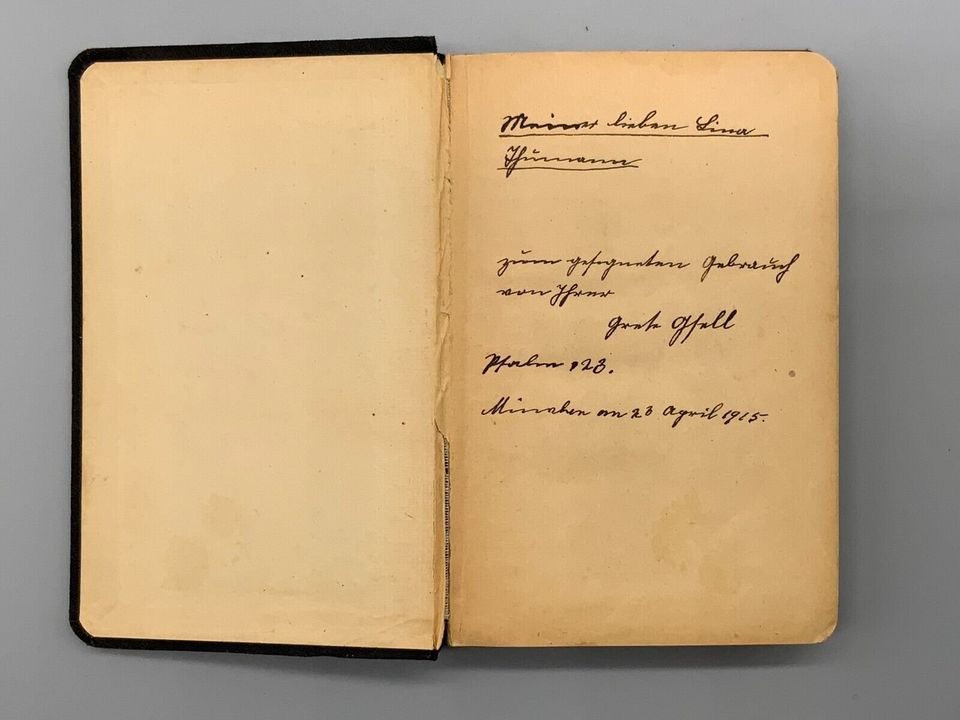 Meiner lieben Lina
Thümann
zum gesegneten Gebrauch
von Ihrer
Grete Gsell
Psalm 123.
München am 23 April 1915.